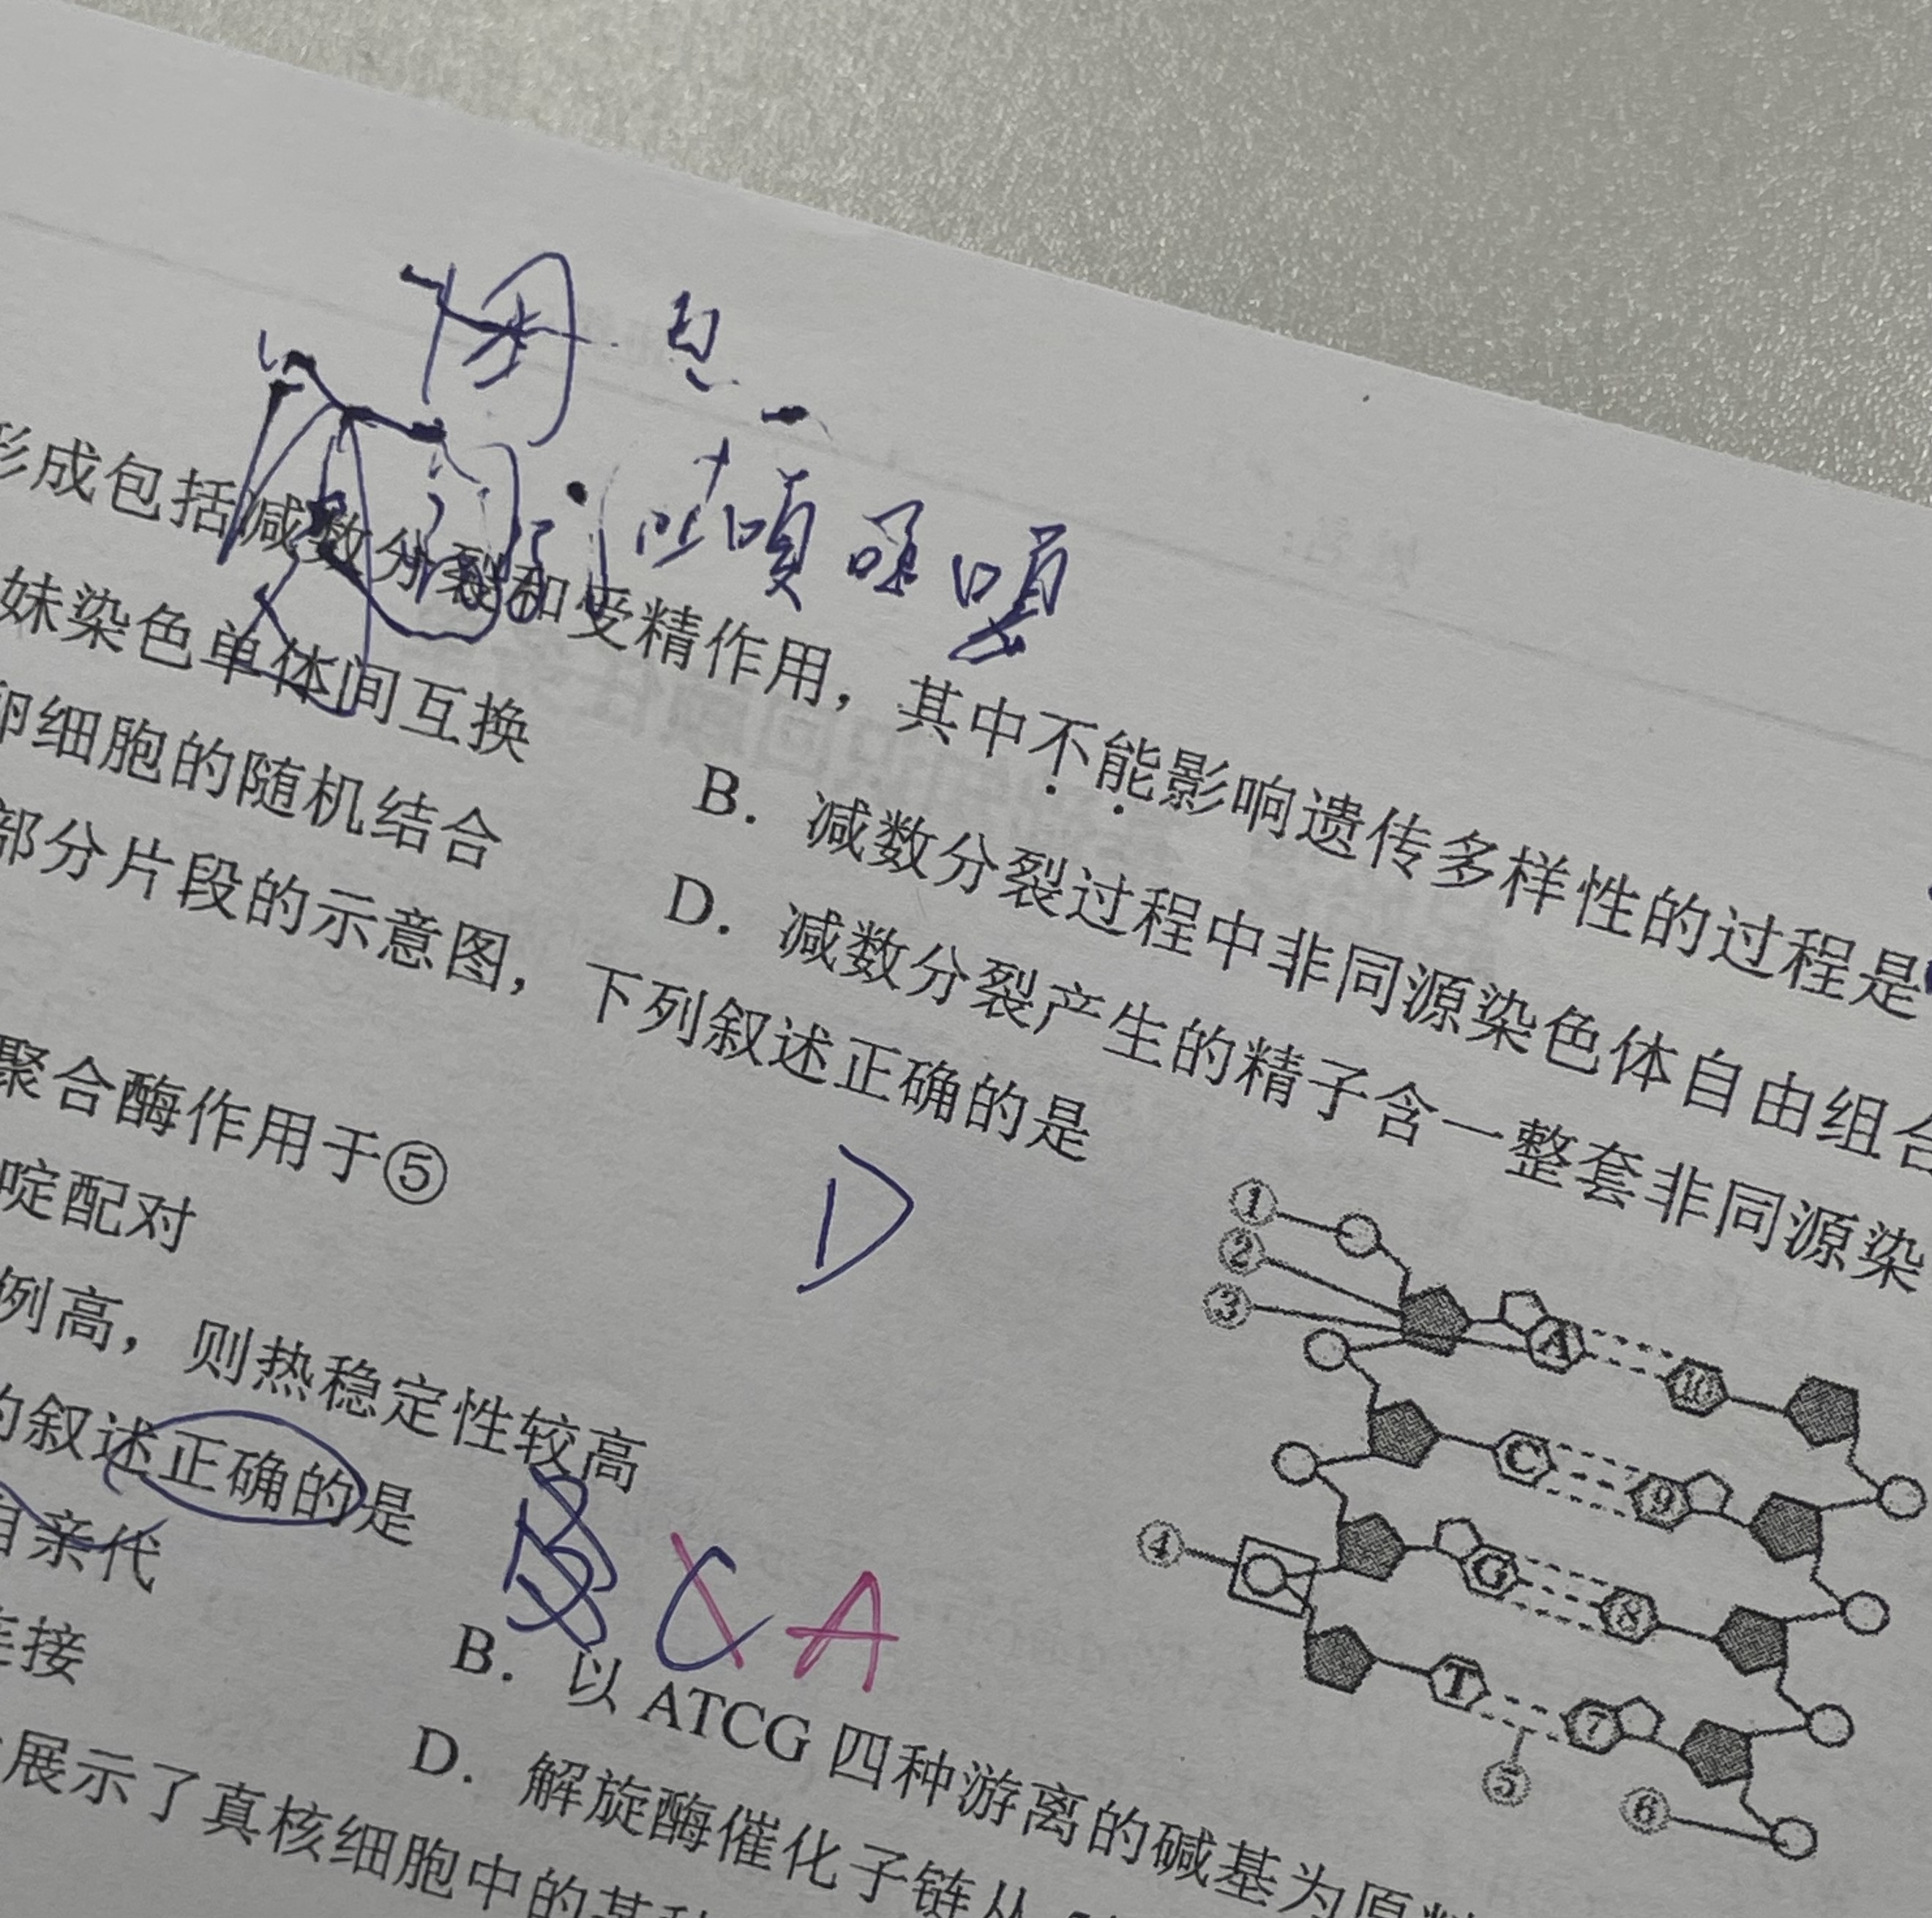 形成包括减数分裂和受精作用，其中不能影响遗传多样性的过程是
妹染色单体间互换
B. 减数分裂过程中非同源染色体自由组合
卵细胞的随机结合
D. 减数分裂产生的精子含一整套非同源染
部分片段的示意图，下列叙述正确的是
聚合酶作用于⑤
D
啶配对
例高，则热稳定性较高
的叙述正确的是
C A
自亲代
B. 以 ATCG 四种游离的碱基为原料
连接
D. 解旋酶催化子链从
展示了真核细胞中的某种
①
②
③
A 10
C 9
④
G 8
T 7
⑤
⑥